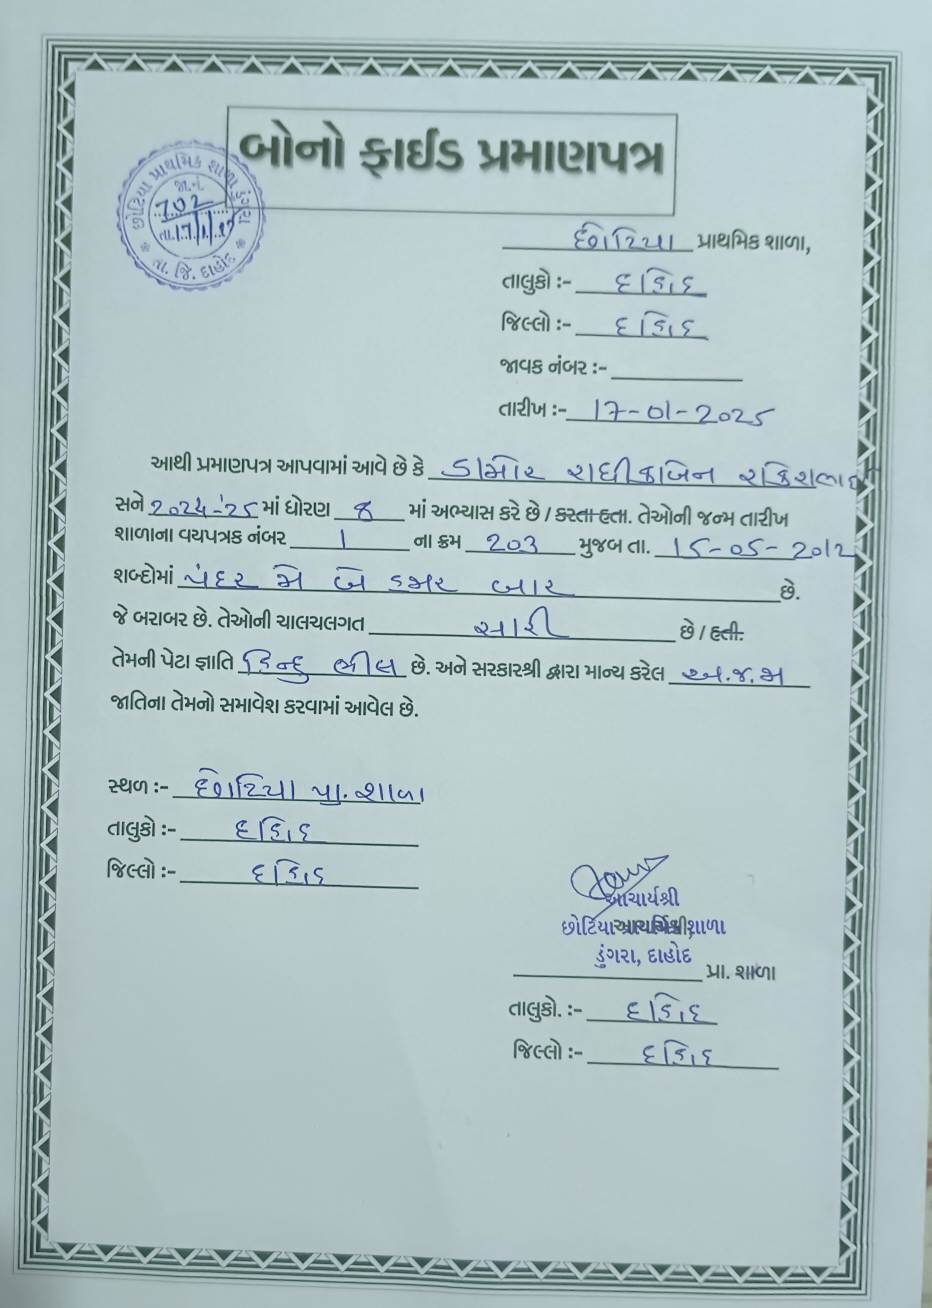 બોનો ફાઈડ પ્રમાણપત્ર
પ્રાથમિક શાળા ડુંગરા
જા.નં.
702
તા. 17/1/25
તા. જિ. દાહોદ
છોટિયા પ્રાથમિક શાળા,
તાલુકો :- દાહોદ
જિલ્લો :- દાહોદ
જાવક નંબર :-
તારીખ :- 17-01-2025
આથી પ્રમાણપત્ર આપવામાં આવે છે કે ડામોર રાધીકાબેન
સને 2024-'25 માં ધોરણ ૪ માં અભ્યાસ કરે છે / કરતા હતા. તેઓની જન્મ તારીખ
શાળાના વયપત્રક નંબર 1 ના ક્રમ 203 મુજબ તા. 15-05-2012
શબ્દોમાં પંદર મે બે હજાર બાર છે.
જે બરાબર છે. તેઓની ચાલચલગત સારી છે / હતી.
તેમની પેટા જ્ઞાતિ હિન્દુ ભીલ છે. અને સરકારશ્રી દ્વારા માન્ય કરેલ અ.જ.જા
જાતિના તેમનો સમાવેશ કરવામાં આવેલ છે.
સ્થળ :- છોટિયા પ્રા. શાળા
તાલુકો :- દાહોદ
જિલ્લો :- દાહોદ
આચાર્યશ્રી
છોટિયા શાળા
ડુંગરા, દાહોદ
પ્રા. શાળા
તાલુકો. :- દાહોદ
જિલ્લો :- દાહોદ